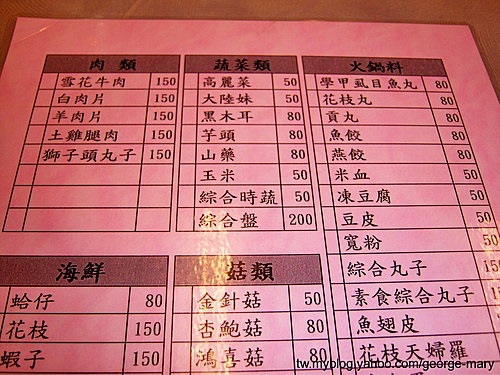 肉 類
雪花牛肉 150
白肉片 150
羊肉片 150
土雞腿肉 150
獅子頭丸子 150
蔬菜類
高麗菜 50
大陸妹 50
黑木耳 80
芋頭 80
山藥 80
玉米 50
綜合時蔬 50
綜合盤 200
火鍋料
學甲虱目魚丸 80
花枝丸 80
貢丸 80
魚餃 80
燕餃 80
米血 50
凍豆腐 50
豆皮 50
寬粉 50
綜合丸子
素食綜合丸子
魚翅皮 80
花枝天婦羅
海鮮
蛤仔 80
花枝 150
蝦子 150
菇類
金針菇 50
杏鮑菇 80
鴻喜菇 80
tw.myblog.yahoo.com/george-mary